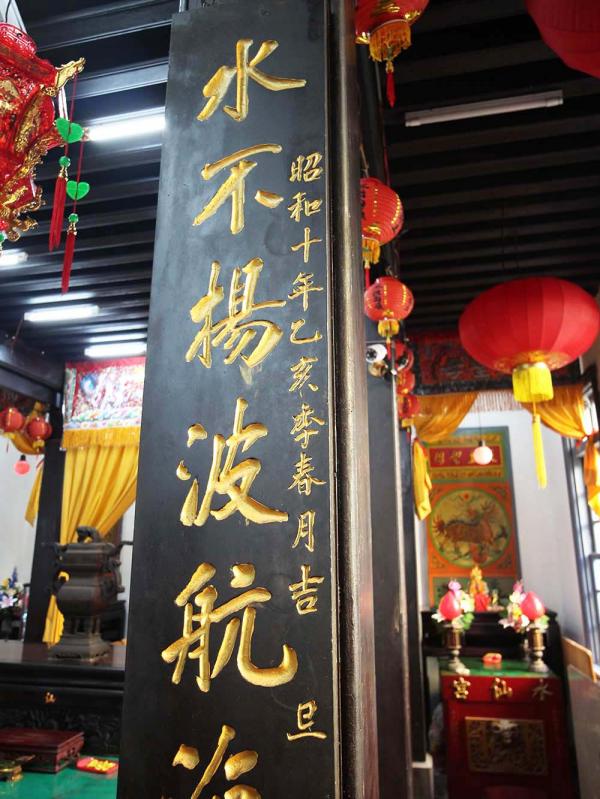 水不楊波航
昭和十年乙亥季春月吉旦
水仙宮